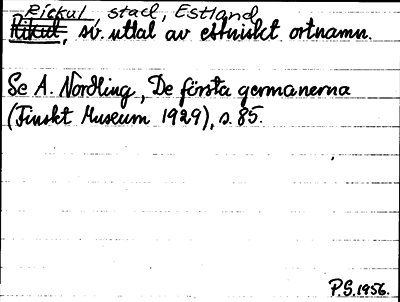 Rickul, stad, Estland
Rikul, sv. uttal av estniskt ortnamn.
Se A. Nordling, De första germanerna
(Finskt Museum 1929), s. 85.
P.S. 1956.